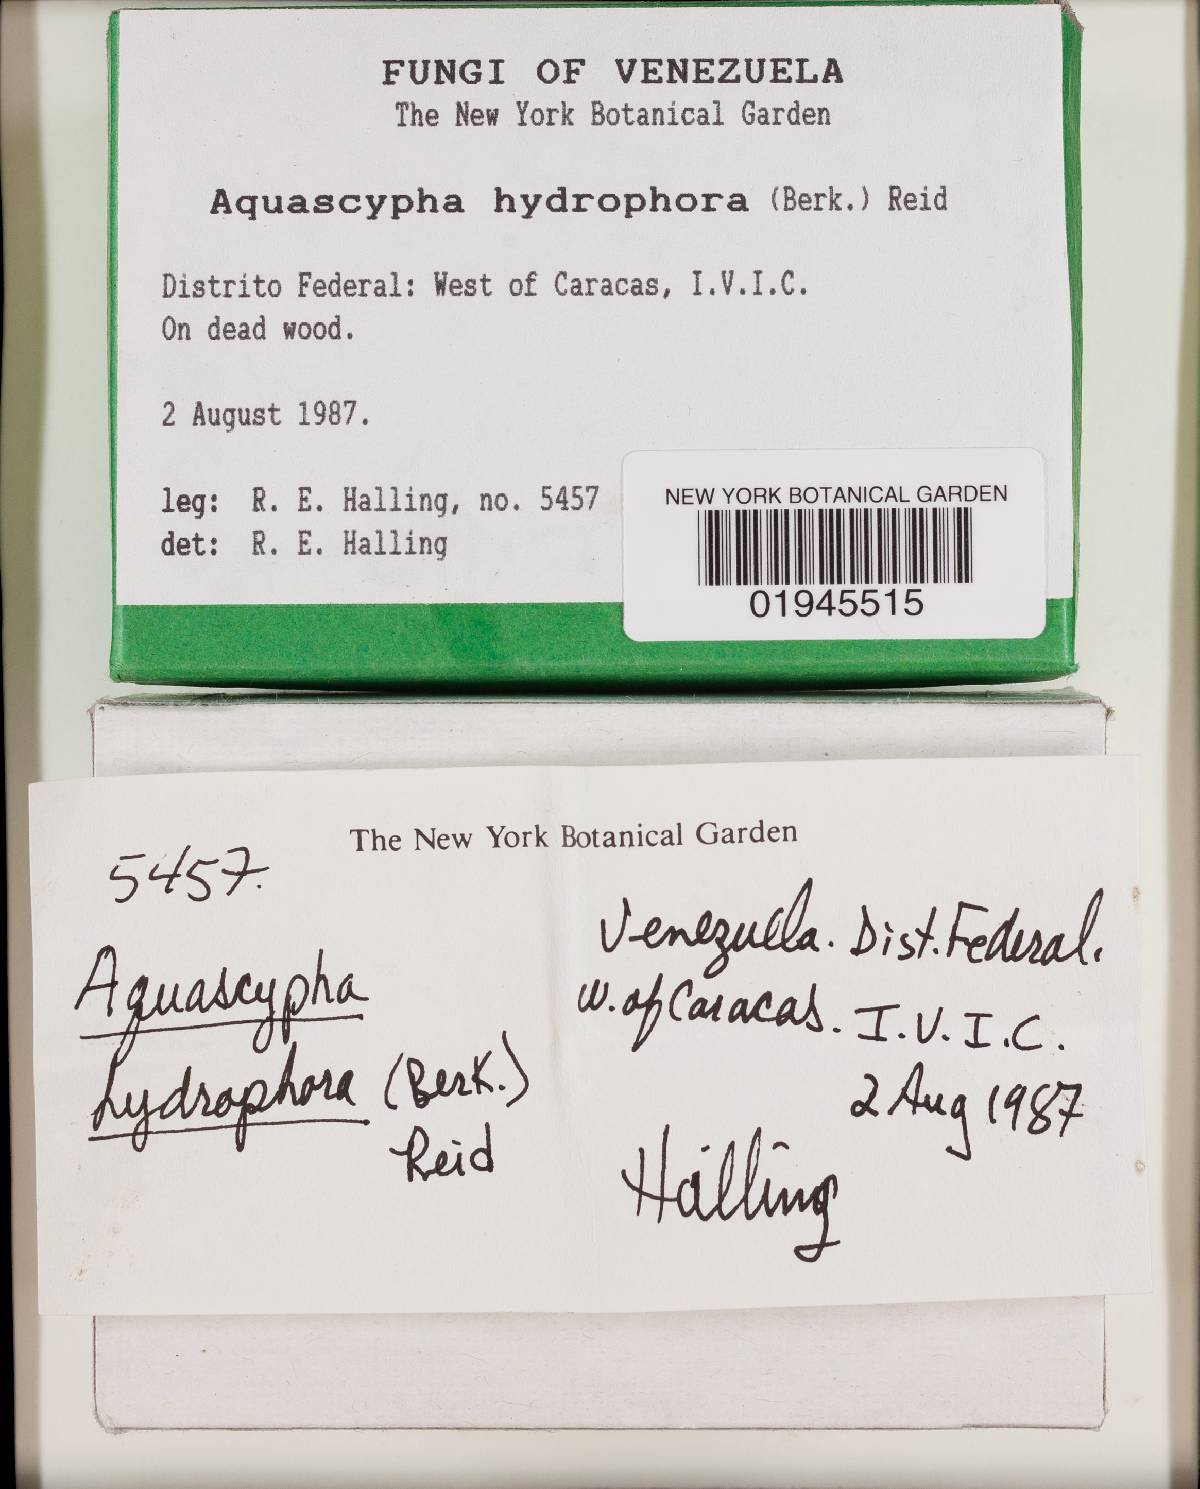 FUNGI OF VENEZUELA
The New York Botanical Garden
Aquascypha hydrophora (Berk.) Reid
Distrito Federal: West of Caracas, I.V.I.C.
On dead wood.
2 August 1987.
leg: R. E. Halling, no. 5457
det: R. E. Halling
NEW YORK BOTANICAL GARDEN
01945515
The New York Botanical Garden
5457.
Aquascypha
hydrophora (Berk.)
Reid
Venezuella. Dist. Federal.
W. of Caracas. I.V.I.C.
2 Aug 1987
Halling